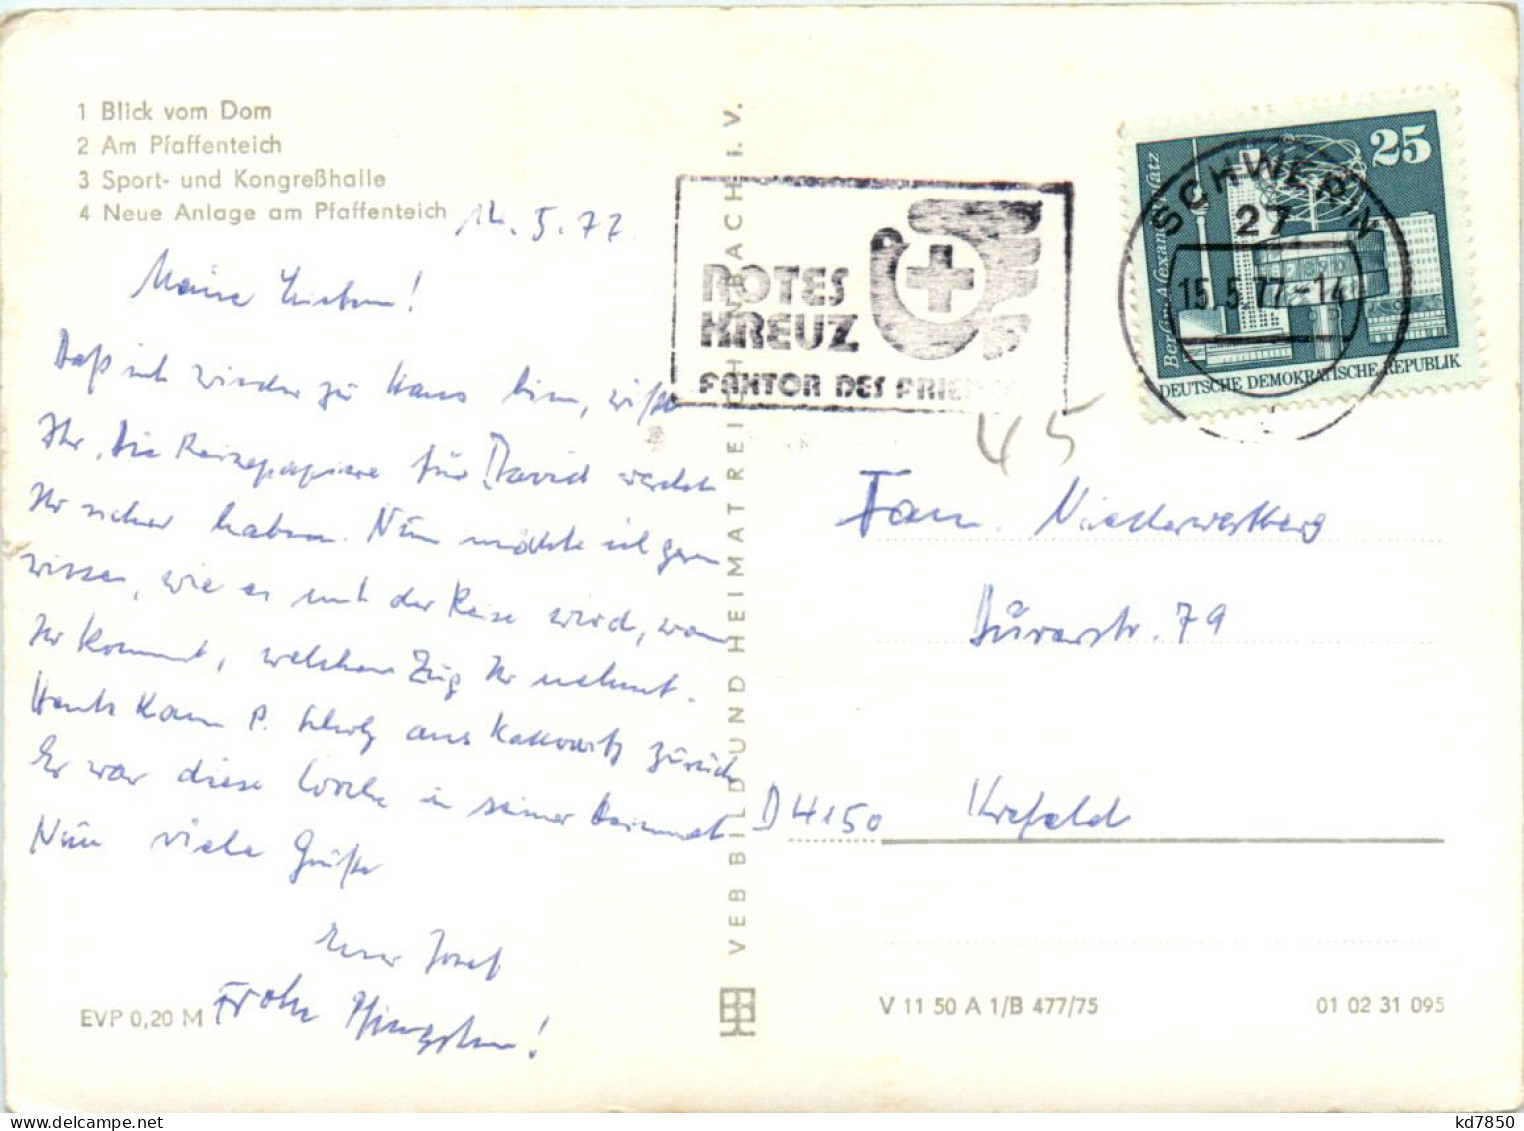 1 Blick vom Dom
2 Am Pfaffenteich
3 Sport- und Kongreßhalle
4 Neue Anlage am Pfaffenteich
5.77
Meine Lieben!
Daß ich wieder zu Haus bin, wißt
Ihr, die Reisepapiere für David werdet
Ihr sicher haben. Nun möchte ich gern
wissen, wie es mit der Reise wird, wann
Ihr kommt, welchen Zug Ihr nehmt.
Heute kam P. Scholz aus Kattowitz zurück
Er war diese Woche in seiner Heimat
Nun viele Grüße
Euer Josef
Frohe Pfingsten!
EVP 0,20 M
VEB BILD UND HEIMAT REICHENBACH i. V.
ROTES
KREUZ
FAKTOR DES FRIEDENS
25
Berlin-Alexanderplatz
DEUTSCHE DEMOKRATISCHE REPUBLIK
SCHWERIN
27
15.5.77.-14
45
Fam. Niederwestberg
Dürerstr. 79
D 4150 Krefeld
V 11 50 A 1/B 477/75
01 02 31 095
kd7850